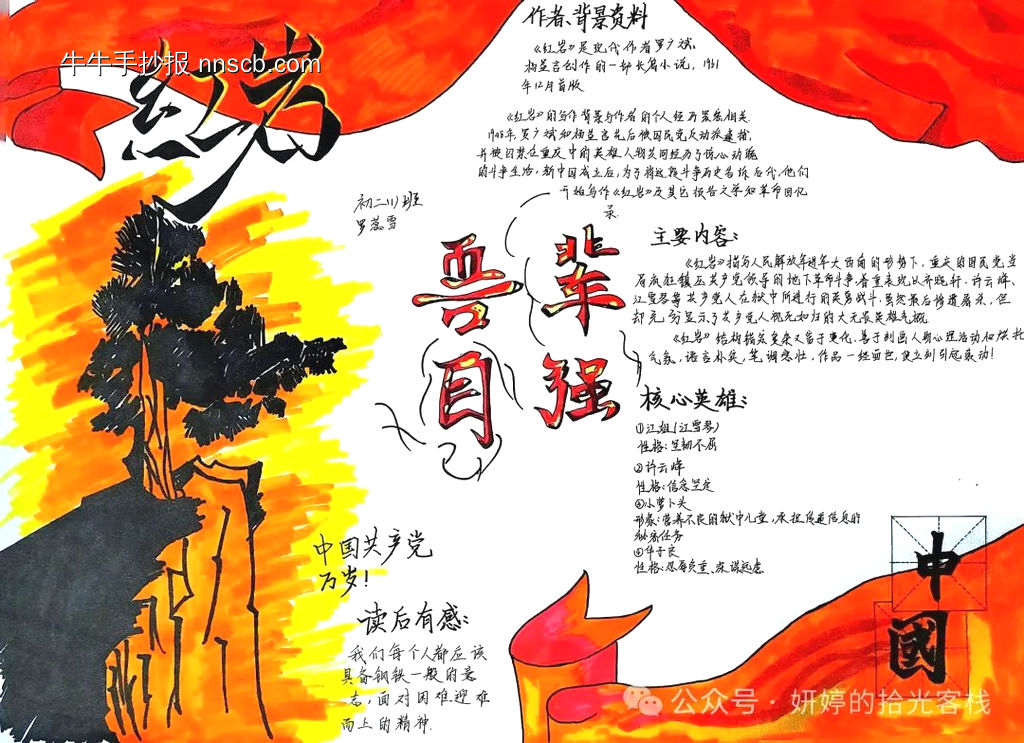 牛牛手抄报 nnscb.com
红岩
作者、背景资料
《红岩》是现代作者罗广斌、
杨益言创作的一部长篇小说，1961
年12月首版
《红岩》的写作背景与作者的个人经历紧密相关
1948年，罗广斌和杨益言先后被国民党反动派逮捕，
并被囚禁在重庆
中的英雄人物共同经历了惊心动魄
的斗争生活，新中国成立后，为了将这段斗争历史告诉后代，他们
开始写作《红岩》及其它报告文学和革命回忆
录
初二(1)班
罗蕊雪
吾辈
自强
主要内容：
《红岩》描写人民解放军进军大西南的形势下，重庆的国民党当
局疯狂镇压共产党领导的地下革命斗争，着重表现以齐晓轩、许云峰、
江雪琴等共产党人在狱中所进行的英勇战斗，虽然最后惨遭屠杀，但
却充分显示了共产党人视死如归的大无畏英雄气概
《红岩》结构错综复杂又富于变化，善于刻画人物心理活动和烘托
气氛，语言朴实，笔调悲壮，作品一经面世，便立刻引起轰动！
核心英雄：
①江姐(江雪琴)
性格：坚韧不屈
②许云峰
性格：信念坚定
③小萝卜头
形象：营养不良的狱中儿童，承担传递信息的
秘密任务
④华子良
性格：忍辱负重、深谋远虑
中国共产党
万岁！
读后有感：
我们每个人都应该
具备钢铁一般的意
志，面对困难迎难
而上的精神.
中
國
公众号·妍婷的拾光客栈